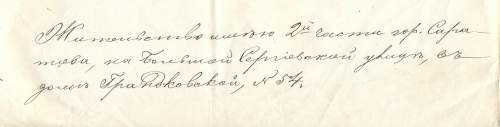 Жительство имѣю 2й части гор. Сара-
това, на Большой Сергіевской улицѣ, въ
домѣ Грабковской, № 54.